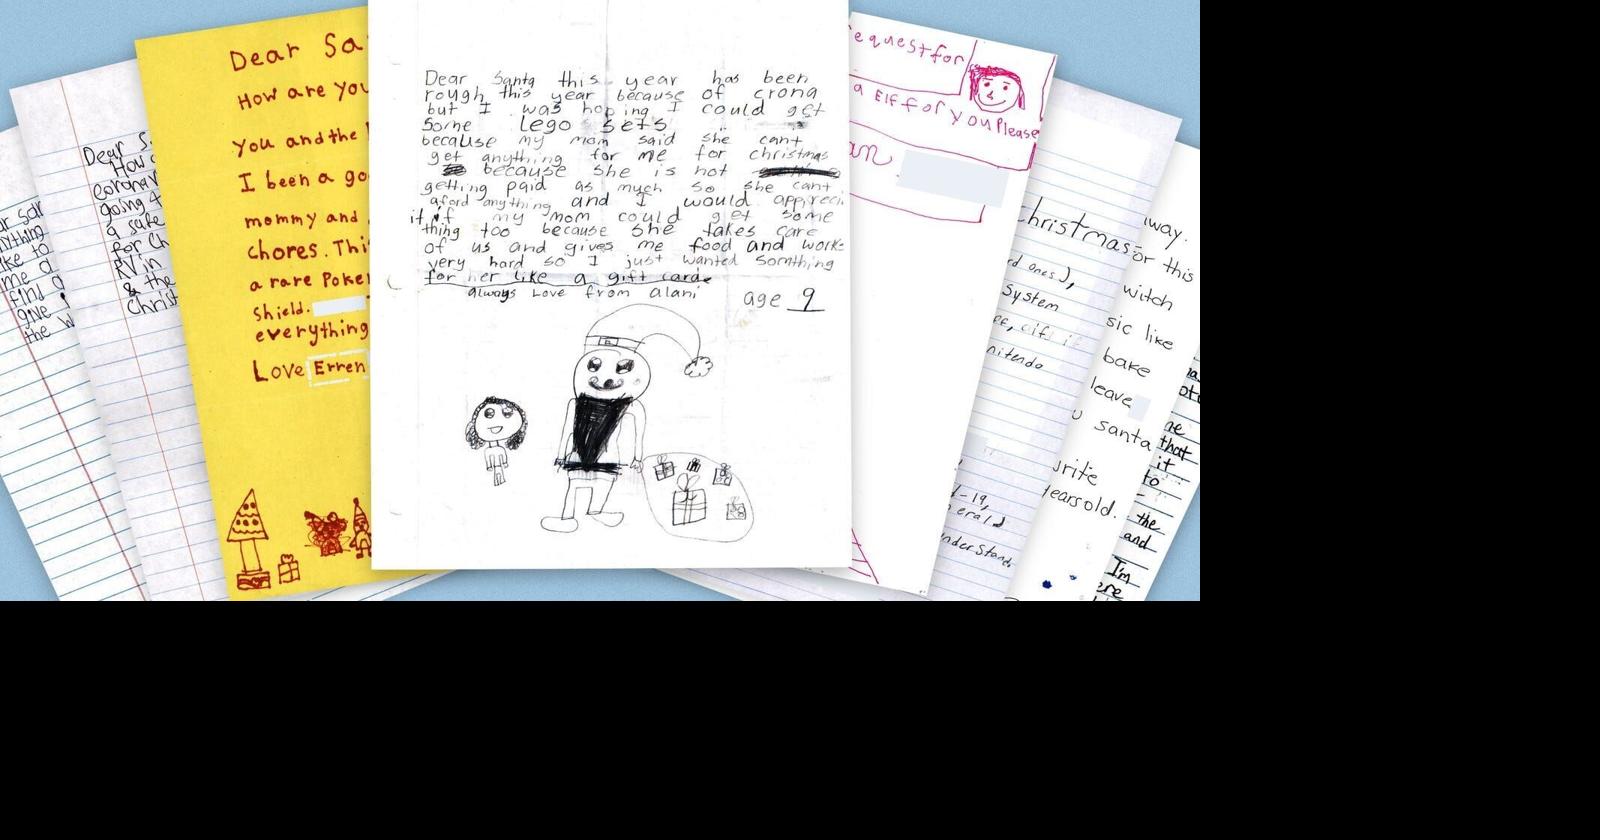 Dear Santa this year has been
rough this year because of crona
but I was hoping I could get
some Lego sets
because my mom said she cant
get anything for me for christmas
because she is not
getting paid as much so she cant
aford anything and I would appreci
it if my mom could get some
thing too because she takes care
of us and gives me food and works
very hard so I just wanted somthing
for her like a gift card
always Love from alani
age 9
Dear Sa
How are you
you and the
I been a go
mommy and
chores. This
a rare Poke
shield.
everything
Love Erren
Dear S
How
coronav
going t
a safe
for Ch
RV in
& the
Christ
ar San
nything
ike to
me a
find a
give
the w
equest for
a Elf for you Please
an
christmas
rd ones),
system
nitendo
d-19,
understand
way.
or this
witch
sic like
bake
leave
u santa
write
years old.
that
it
to
the
and
I'm
ere